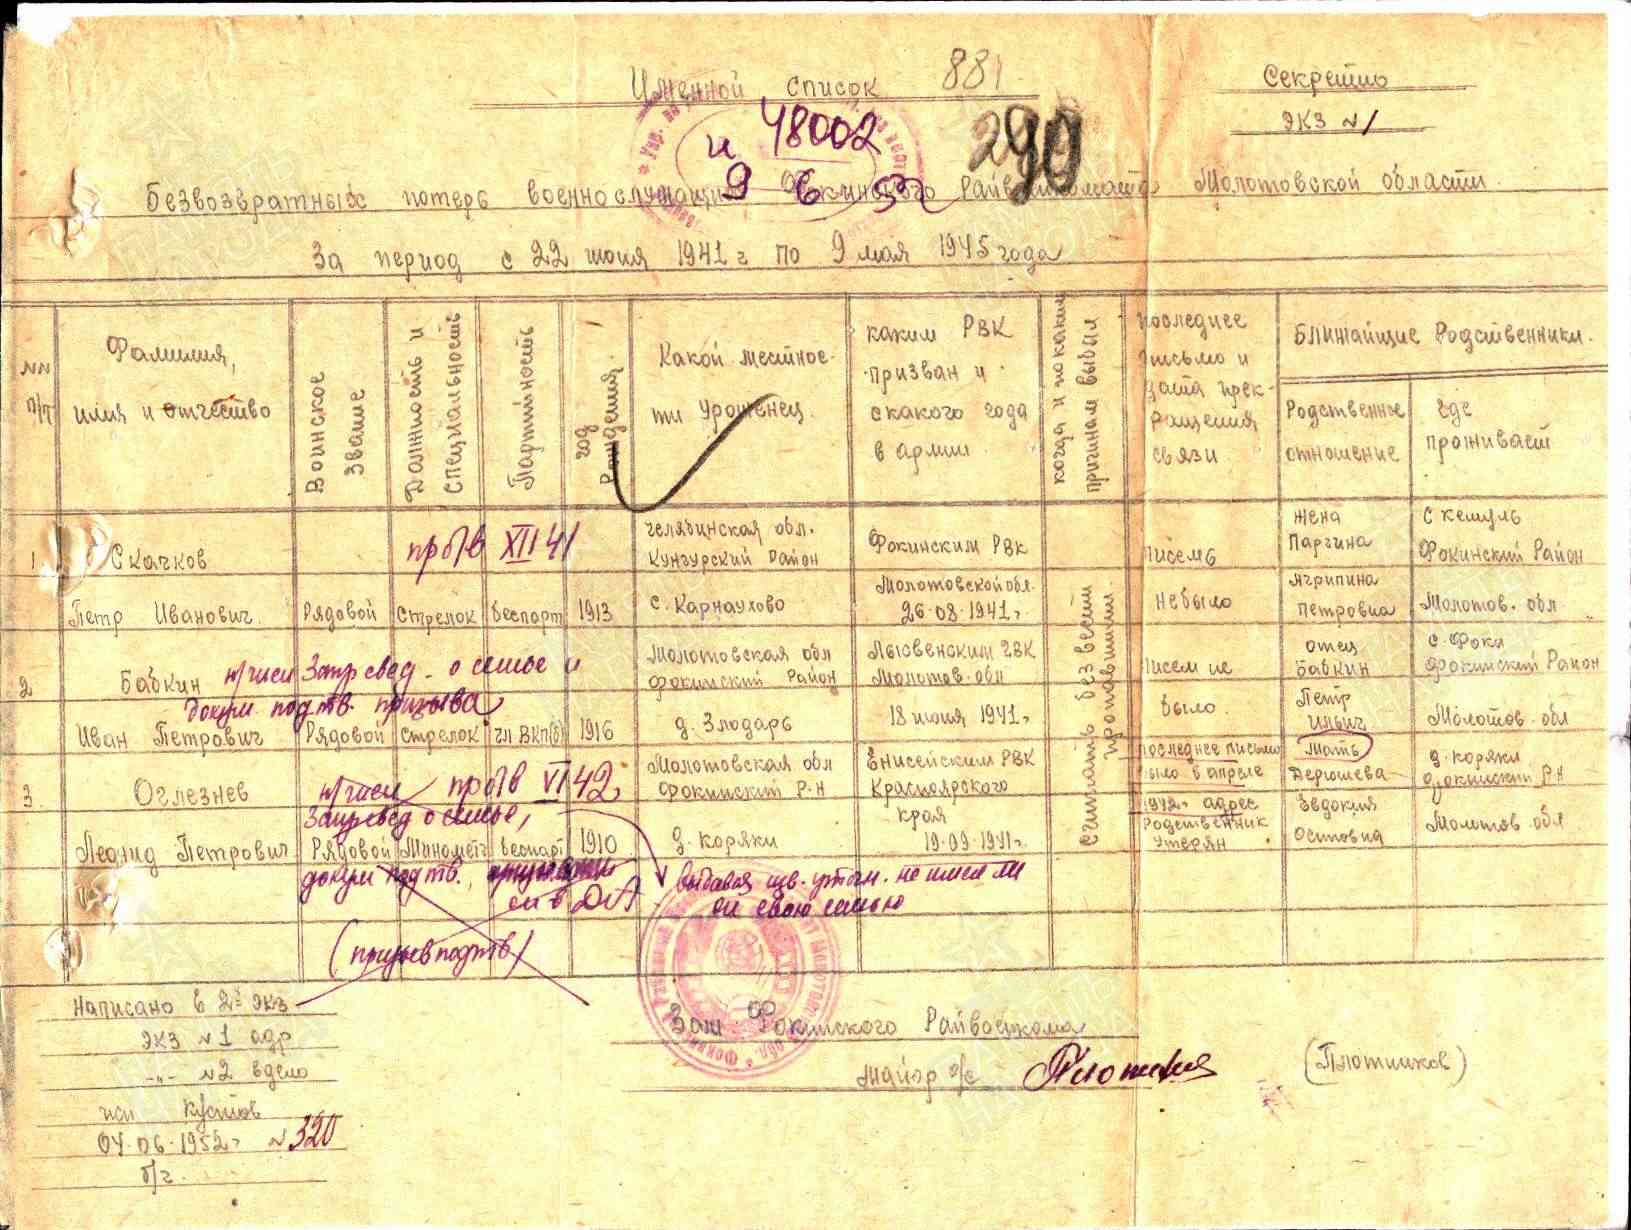 Именной список 881
Секретно
экз № 1
и 48002
290
9 6 52
Безвозвратных потерь военнослужащих Фокинского Райвоенкомата Молотовской области
За период с 22 июня 1941 г по 9 мая 1945 года
№№ п/п
Фамилия,
имя и отчество
Воинское
звание
Должность и
специальность
Партийность
год
Рождения
Какой местнос-
ти урошенец.
каким РВК
призван и
с какого года
в армии
когда и по каким
причинам выбыл
последнее
письмо и
дата прек-
ращения
связи
Ближайшие Родственники.
Родственное
отношение
где
проживает
1
Скачков
Петр Иванович.
Рядовой
Стрелок
беспарт
1913
пр б/в XII 41
челябинская обл.
Кунгурский Район
с. Карнаухово
Фокинским РВК
Молотовской обл.
26.08.1941г.
считать без вести
пропавшим
писемь
небыло
жена
Паргина
Агрипина
петровна
с кемуль
Фокинский Район
Молотов. обл
2
Бабкин
Иван Петрович
Рядовой
Стрелок
чл ВКП(б)
1916
н/числ Запр свед. о семье и
докум. подтв. призыва
Молотовская обл
Фокинский Район
д. Злодарь
Лысвенским ГВК
Молотов. обл
18 июня 1941г.
писем не
было.
отец
Бабкин
Петр
ильич
с. Фоки
Фокинский Район
Молотов. обл
3.
Оглезнев
Леонид Петрович
Рядовой
Миномётч
беспарт
1910
н/числ пр б/в VI 42
Запр свед о семье,
докум подтв.,
(призыв подтв)
Молотовская обл
Фокинский Р-Н
д. коряки
Енисейским РВК
Красноярского
края
19.09.1941г.
последнее письмо
было в апреле
1942г. адрес
Родственник
Утерян
Мать
Дерюшева
Евдокия
Осиповна
д. коряки
Фокинский РН
Молотов. обл
свою семью
Написано в 2х экз
экз №1 адр
-"- №2 вдело
исп Кустов
04.06.1952г №320
б/ч.
Зам Фокинского Райвоенкома
майор а/с
(Плотников)